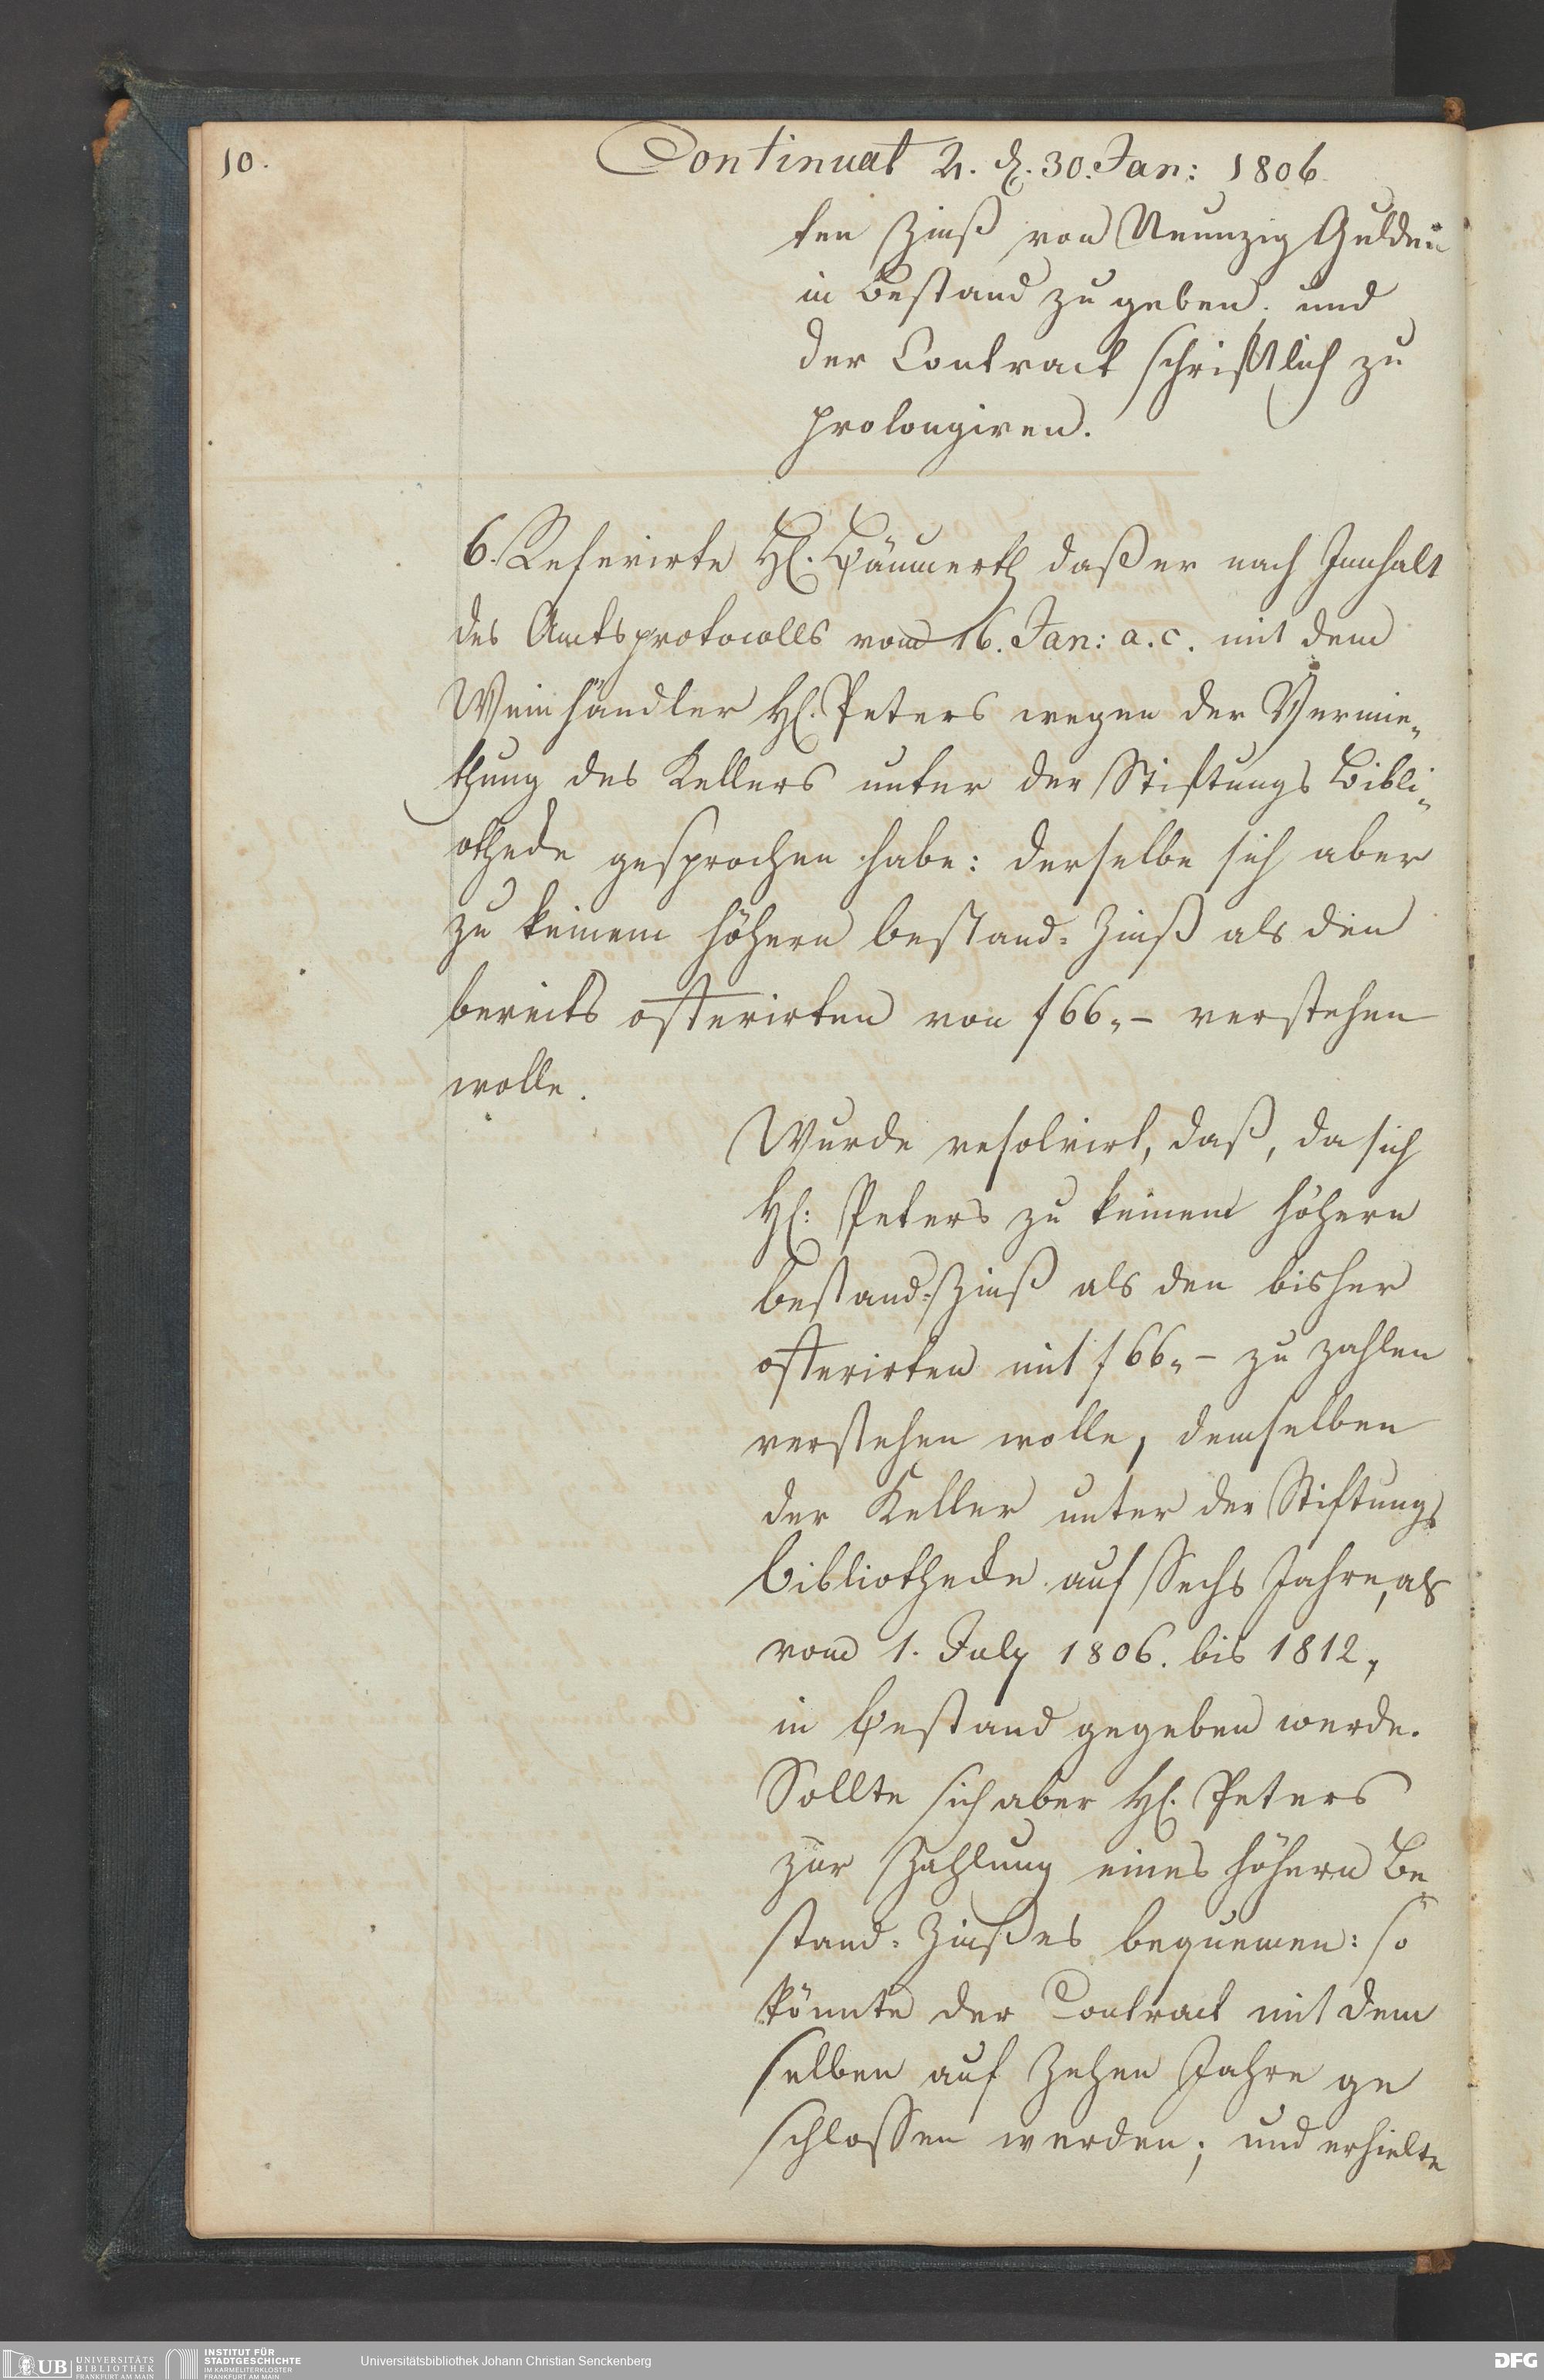 10.
Continuat 2. d. 30. Jan: 1806
ten Zinß von Neunzig Gulden
in Bestand zu geben. und
der Contract schriftlich zu
prolongiren.
6. Referirte H. Bäumerth daß er nach Innhalt
des Amtsprotocolls vom 16. Jan: a. c. mit dem
Weinhändler H. Peters wegen der Vermie-
thung des Kellers unter der Stiftungs Bibli-
othecke gesprochen habe: derselbe sich aber
zu keinem höhern Bestand-Zinß als den
bereits offerirten von f 66,- verstehen
wolle.
Wurde resolvirt, daß, da sich
H: Peters zu keinem höhern
Bestand-Zinß als den bisher
offerirten mit f 66,- zu zahlen
verstehen wolle, demselben
der Keller unter der Stiftungs
bibliothecke auf Sechs Jahre, als
vom 1. July 1806. bis 1812,
in Bestand gegeben werde.
Sollte sich aber H. Peters
zur Zahlung eines höhern Be
stand-Zinßes bequemen: so
könnte der Contract mit dem
selben auf Zehen Jahre ge
schlossen werden; und erhielte
UB UNIVERSITÄTS
BIBLIOTHEK
FRANKFURT AM MAIN
INSTITUT FÜR
STADTGESCHICHTE
IM KARMELITERKLOSTER
FRANKFURT AM MAIN
Universitätsbibliothek Johann Christian Senckenberg
DFG